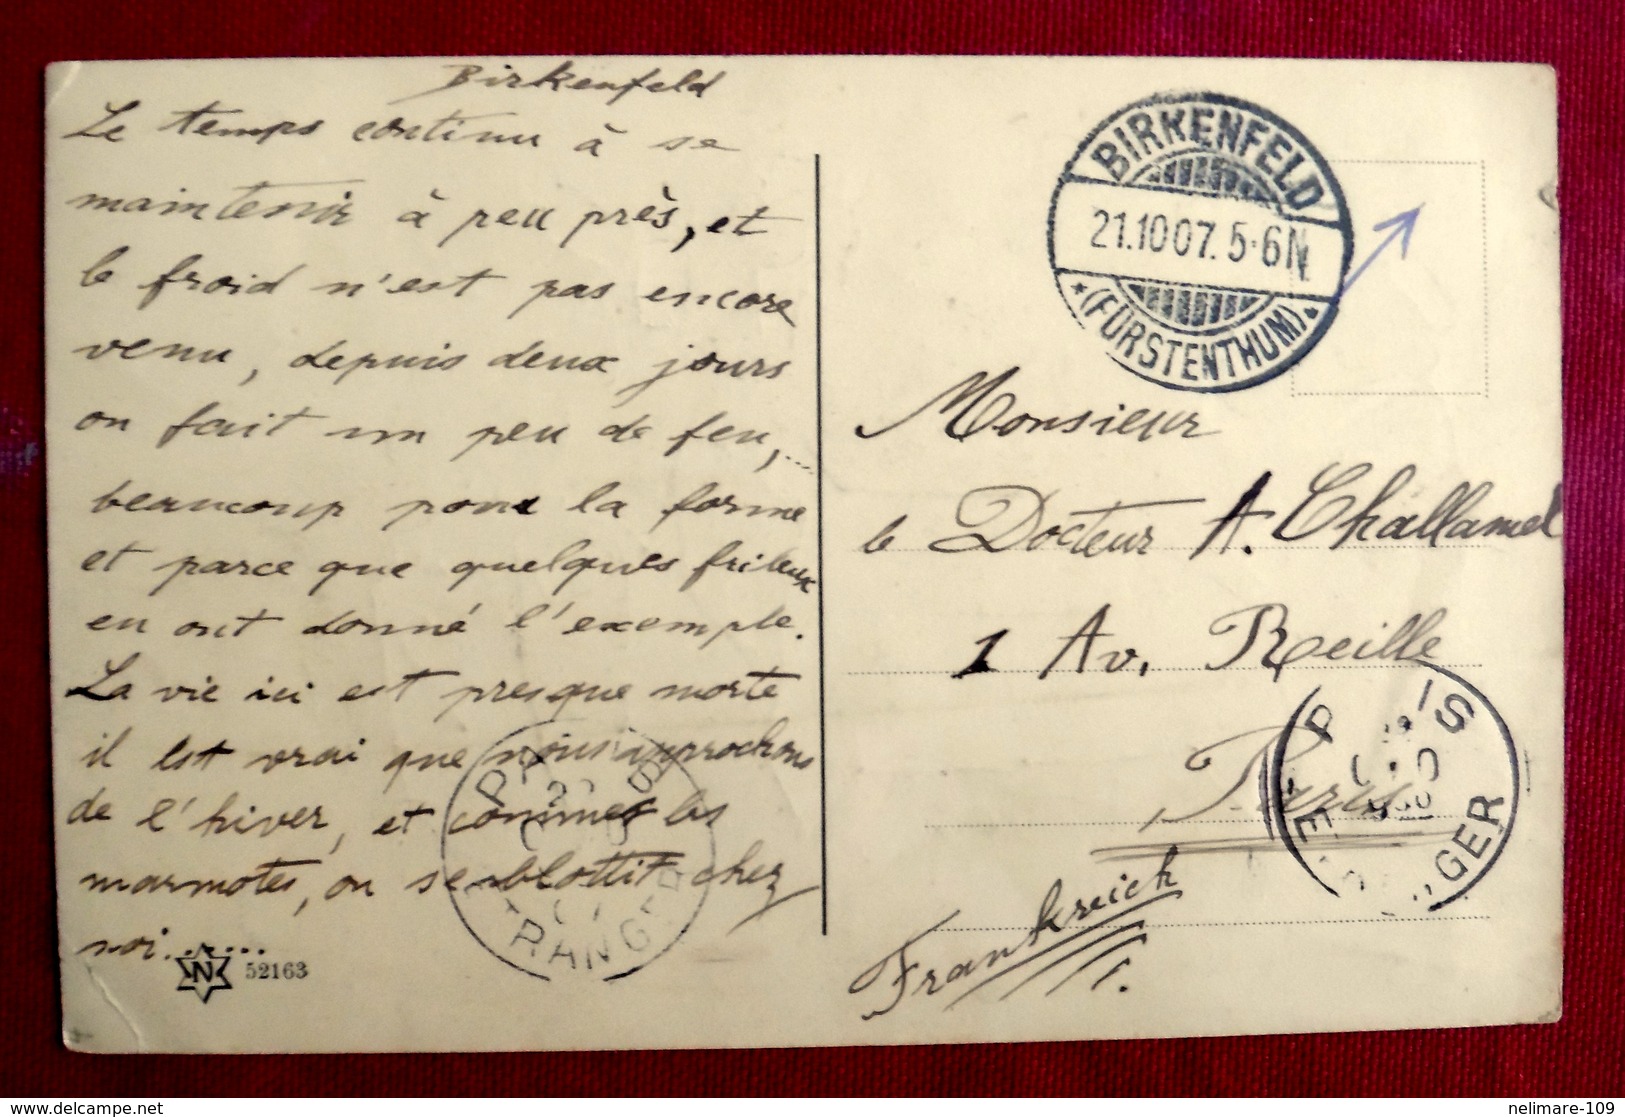 Birkenfeld
Le temps continu à se
maintenir à peu près, et
le froid n'est pas encore
venu, depuis deux jours
on fait un peu de feu,...
beaucoup pour la forme
et parce que quelques frileux
en ont donné l'exemple.
La vie ici est presque morte
il est vrai que nous approchons
de l'hiver, et comme les
marmotes, on se blottit chez
soi......
N 52163
BIRKENFELD
21.10 07. 5-6N.
*(FÜRSTENTHUM)*
Monsieur
le Docteur A. Challamel
1 Av. Reille
Paris
Frankreich
PARIS
ETRANGER
PARIS
ETRANGER
delcampe.net
nelimare-109